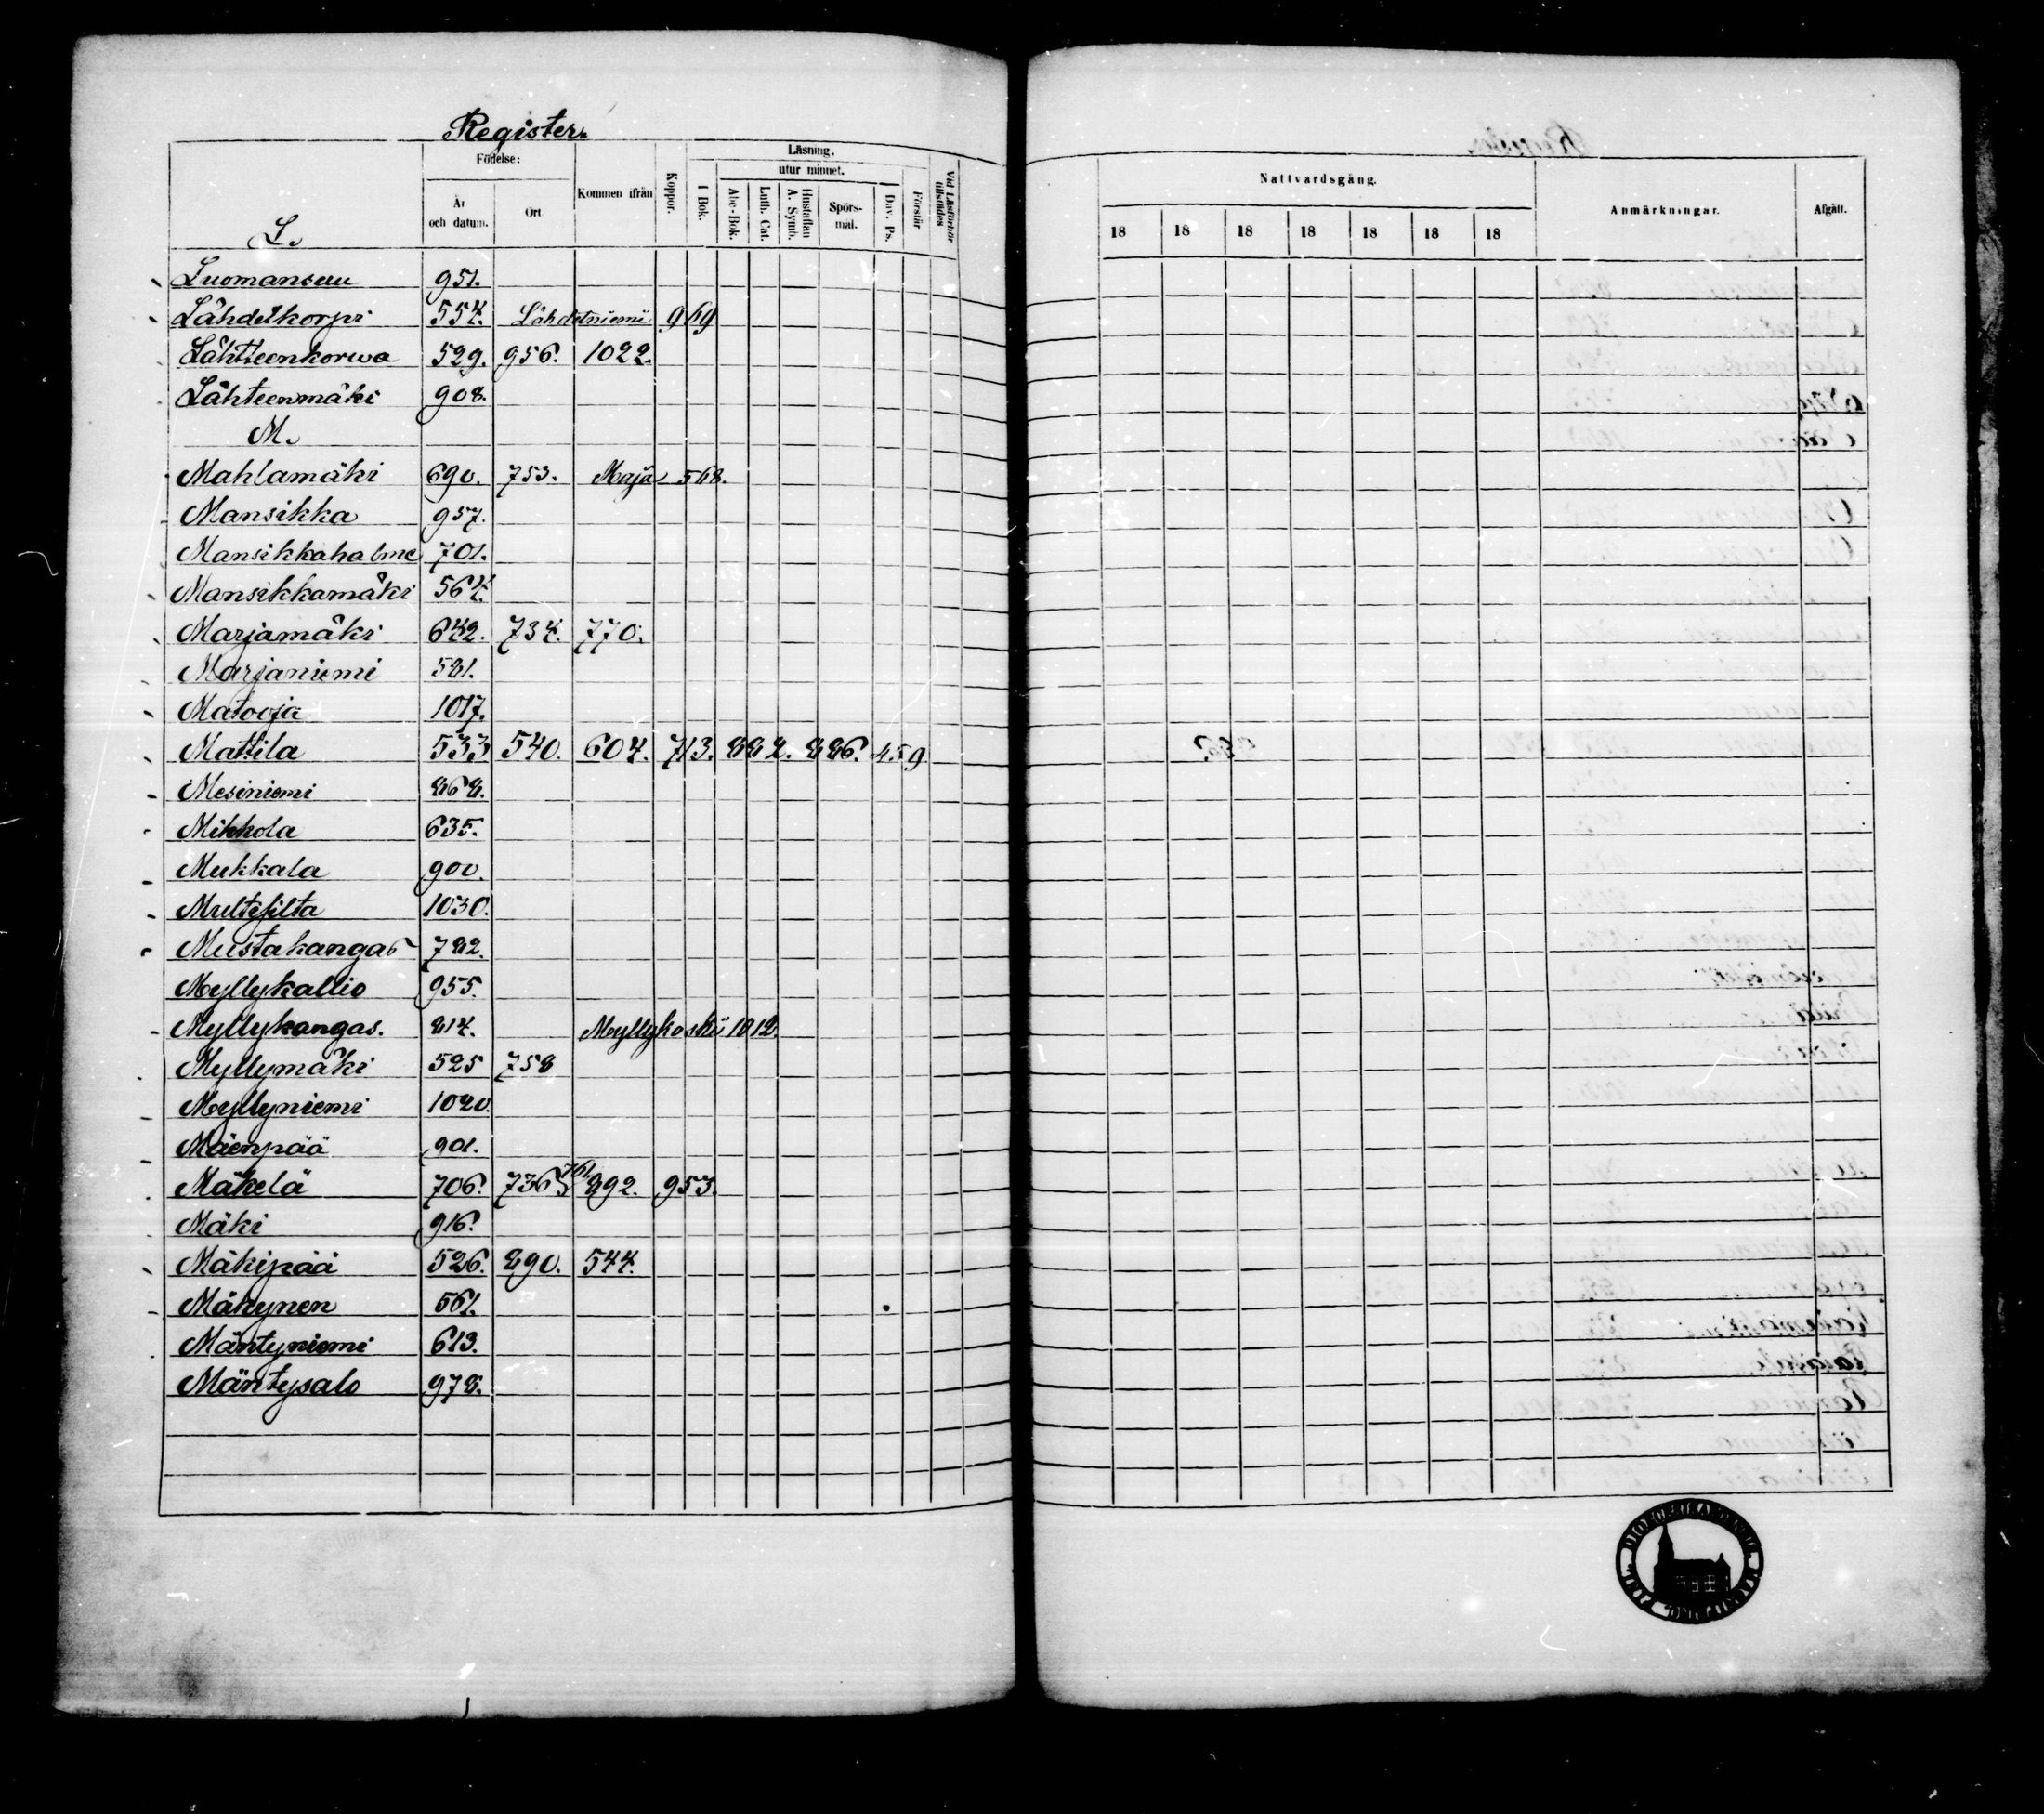 Register.
Födelse:
År och datum.
Ort
Kommen ifrån
Koppor.
Läsning.
utur minnet.
I Bok.
Abc-Bok.
Luth. Cat.
Hustaflan A. Symb.
Spörs-mål.
Dav. Ps.
Förstår
Vid Läsförhör tillstädes
Nattvardsgång.
18 18 18 18 18 18 18
Anmärkningar.
Afgått.
L.
Luomansuu 951.
Lähdetkorpi 554. Lähdetniemi 969
Lähteenkorwa 529. 956. 1022.
Lähteenmäki 908.
M.
Mahlamäki 690. 753. Maja 568.
Mansikka 957.
Mansikkahalme 701.
Mansikkamäki 564.
Marjamäki 642. 734. 770.
Marjaniemi 581.
Matooja 1017.
Mattila 533 540. 604. 713. 882. 886. 459.
Mesiniemi 868.
Mikkola 635.
Mukkala 900.
Multisilta 1030.
Mustakangas 782.
Myllykallio 955.
Myllykangas. 814. Myllykoski 1012.
Myllymäki 525 758
Myllyniemi 1020.
Mäenpää 901.
Mäkelä 706. 736. 761 892. 953.
Mäki 916.
Mäkipää 526. 890. 544.
Mäkynen 561.
Mäntyniemi 613.
Mäntysalo 978.